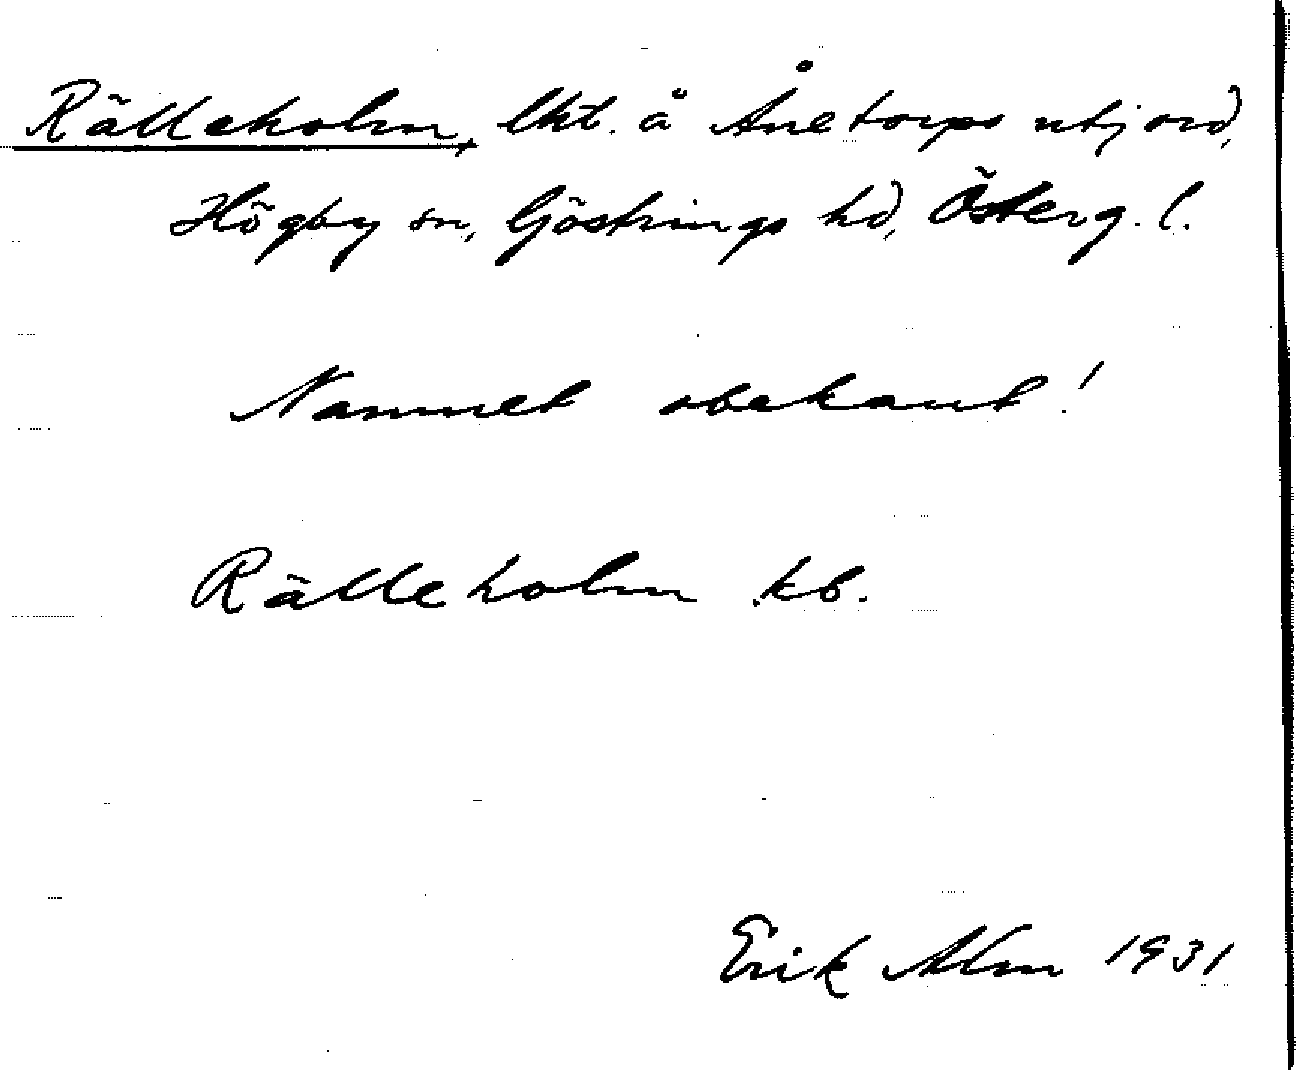 Rälleholm, lht. å Ånetorps utjord,
Högby sn, Göstrings hd, Österg. l.
Namnet obekant!
Rälleholm kb.
Erik Alm 1931